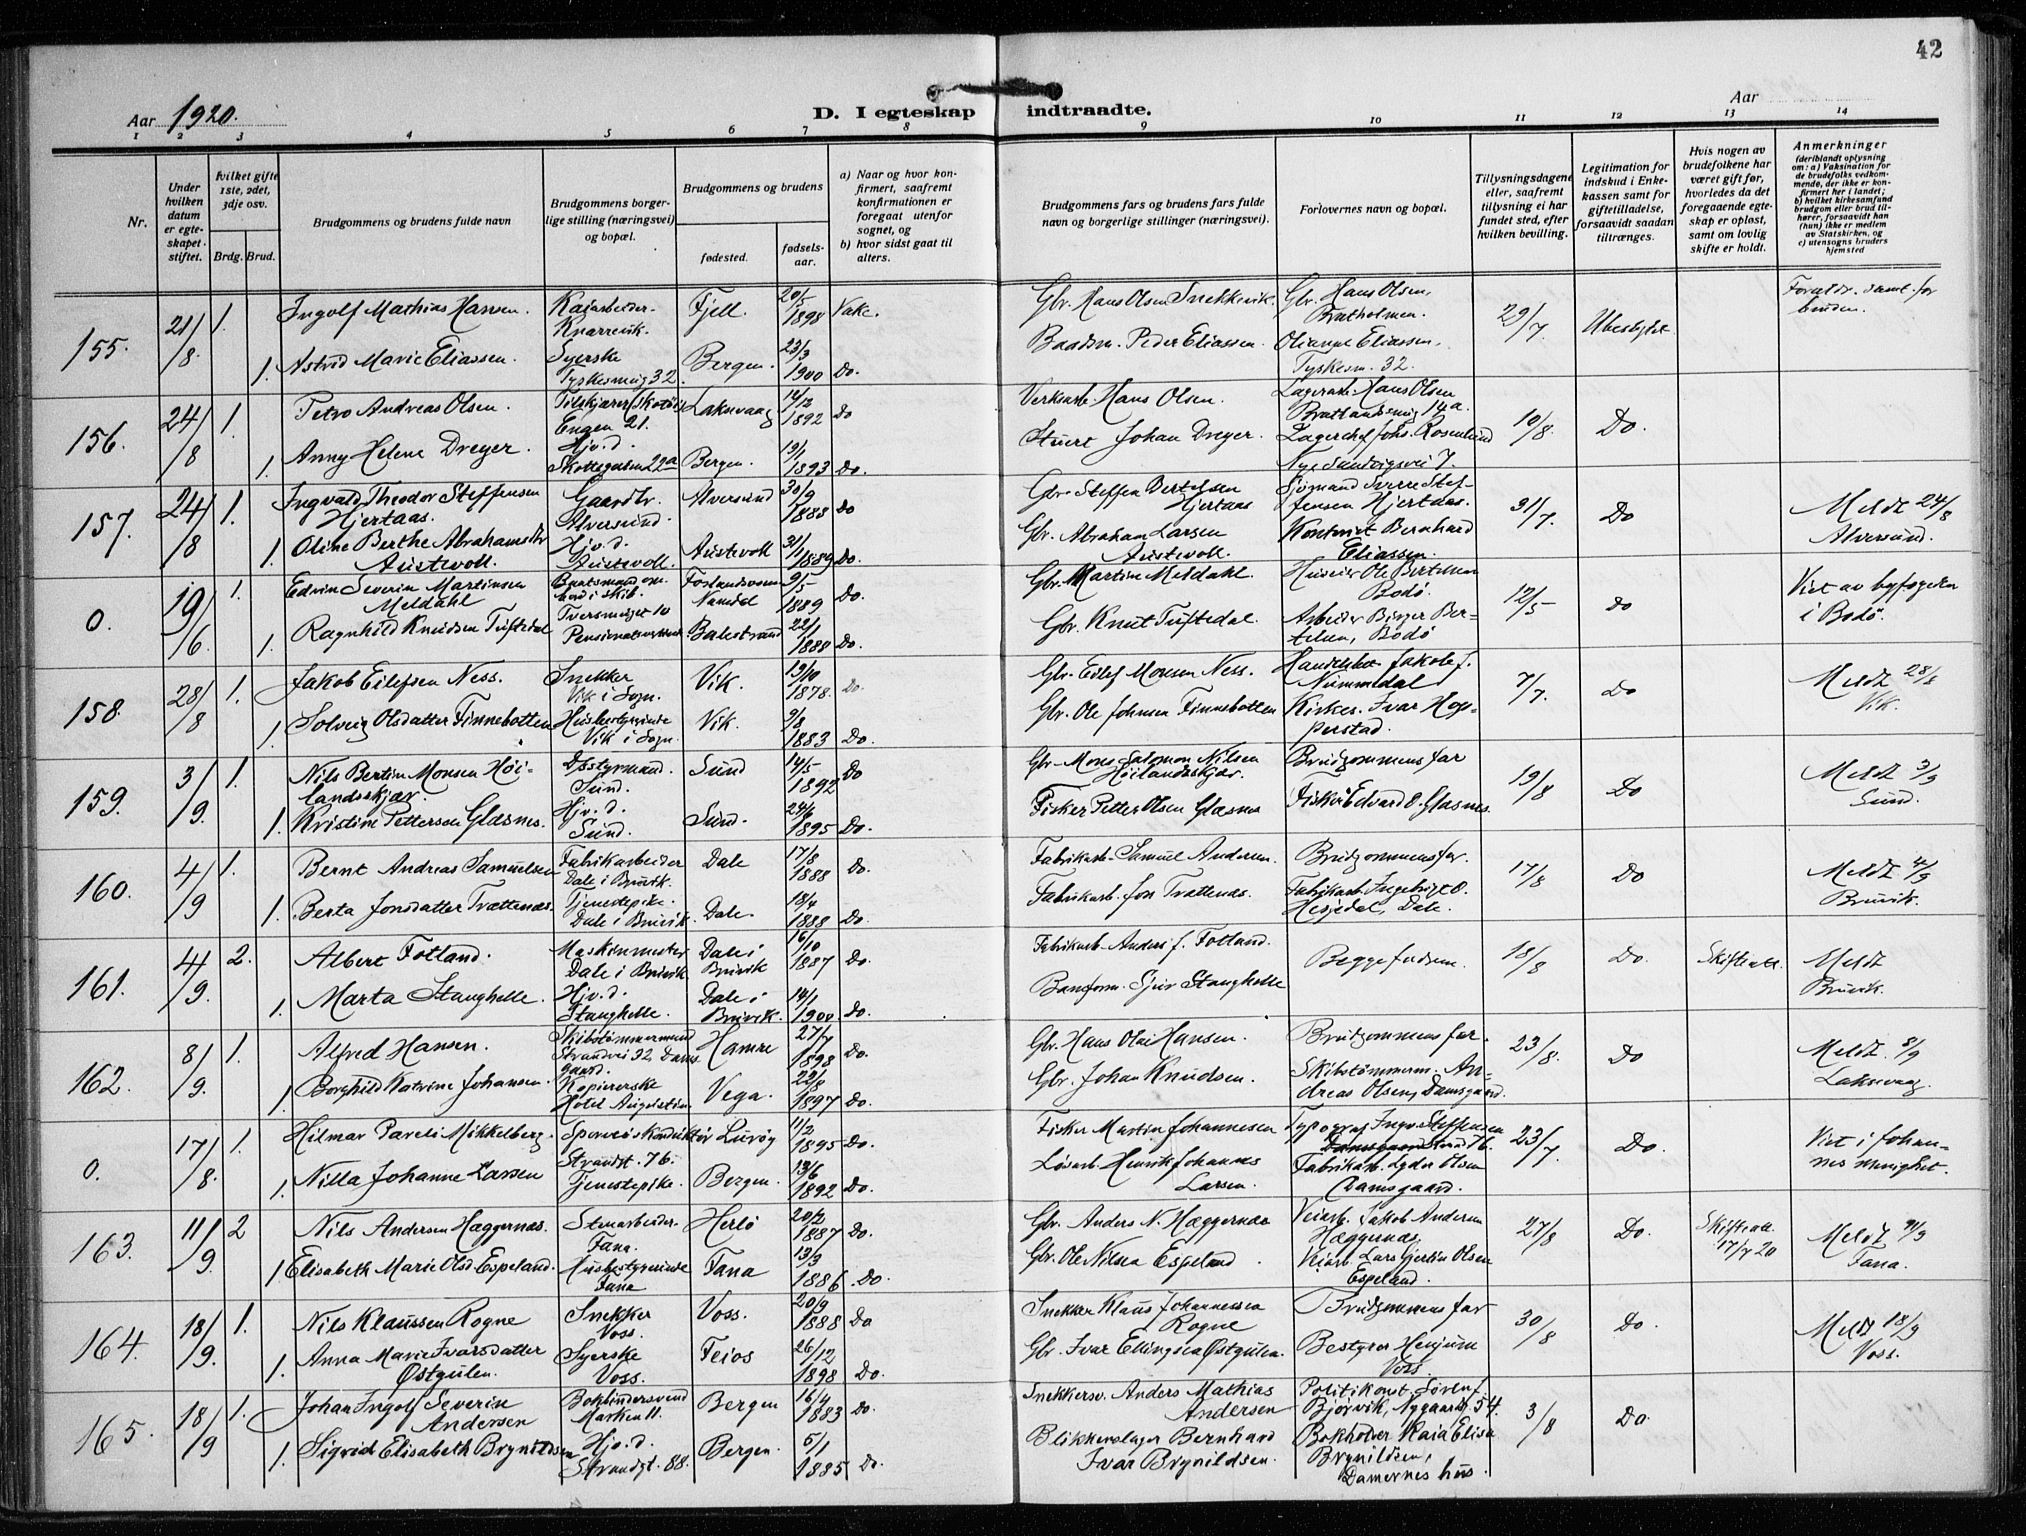 42
Aar 1920.
D. I egteskap indtraadte.
Aar
1 2 3 4 5 6 7 8 9 10 11 12 13 14
Nr.
Under hvilken datum er egteskapet stiftet.
hvilket gifte 1ste, 2det, 3dje osv.
Brdg. Brud.
Brudgommens og brudens fulde navn
Brudgommens borgerlige stilling (næringsvei) og bopæl.
Brudgommens og brudens
fødested.
fødselsaar.
a) Naar og hvor konfirmert, saafremt konfirmationen er foregaat utenfor sognet, og
b) hvor sidst gaat til alters.
Brudgommens fars og brudens fars fulde navn og borgerlige stillinger (næringsvei).
Forlovernes navn og bopæl.
Tillysningsdagene eller, saafremt tillysning ei har fundet sted, efter hvilken bevilling.
Legitimation for indskud i Enkekassen samt for giftetilladelse, forsaavidt saadan tiltrænges.
Hvis nogen av brudefolkene har været gift før, hvorledes da det foregaaende egteskap er opløst, samt om lovlig skifte er holdt.
Anmerkninger
(deriblandt oplysning om: a) Vaksination for de brudefolks vedkommende, der ikke er konfirmert her i landet; b) hvilket kirkesamfund brudgom eller brud tilhører, forsaavidt han (hun) ikke er medlem av Statskirken, og c) utensogns bruders hjemsted
155. 21/8 1. Ingolf Mathias Hansen. Kaiarbeider Knarrevik. Fjell. 20/5 1898 Vake. Gbr. Hans Olsen Snekkevik. Gbr. Hans Olsen, Bratholmen. 29/7
1. Astrid Marie Eliassen. Syerske Tyskesmug 32 Bergen. 23/3 1900 Do. Baadsm. Peder Eliassen. Eliassen, Tyskesm. 32.
156. 24/8 1. Petro Andreas Olsen. Engen 21. Laksevaag 1892 Do Hans Olsen. Lagerarb. Hans Olsen 14a. 10/8. Do.
1. Anny Helene Dreyer. Hjv. d. 22a Bergen. 19/1 1893 Do. Stuert Johan Dreyer. Lagerchef Johs. Rosenlund Nye Sandvigsvei 7.
157. 24/8 1. Ingvald Theodor Steffensen Hjertaas. Gaardbr. Alversund. Alversund 30/9 1888 Do Gbr. Steffen Bertelsen Hjertaas Sjømand Sverre Steffensen Hjertaas. 31/7. Do Meldt 24/8 Alversund.
1. Oline Berthe Abrahamsdtr Austevoll. Hjv. d. Austevoll. Austevoll 31/1 1889 Do. Gbr. Abraham Larsen Austevoll. Kontorist Bernhard Eliassen.
0. 19/6 1. Edvin Severin Martinsen Meldahl Tversmuget 10 Namdal 9/5 1889 Do. Gbr. Martin Meldahl. Huseier Ole Bertelsen Bodø. 12/5 Do Viet av byfogden i Bodø.
1. Ragnhild Knudsen Tuftedal Balestrand 22/1 1888 Do. Gbr. Knut Tuftedal. Arbeider Birger Bertelsen, Bodø
158. 28/8 1. Jakob Eilefsen Ness. Snekker Vik i Sogn. Vik. 19/10 1878. Do. Gbr. Eilef Monsen Ness. Jakob J. Nummedal 7/7. Do Meldt 28/8 Vik.
1. Solveig Olsdatter Finnebotten Husbestyrerinde Vik i Sogn. Vik. 9/8 1883 Do. Gbr. Ole Johnsen Finnebotten Kirkes. Ivar Hopperstad.
159. 3/9. 1. Nils Bertin Monsen Høilandsskjær. Dpstyrmand. Sund. Sund 14/5 1892 Do Gbr. Mons Salomon Nilsen Høilandsskjær. Brudgommens far 19/8 Do Meldt 3/9 Sund.
1. Kristine Pettersen Glæsnes. Hjv. d. Sund. Sund. 1895 Do. Fisker Petter Olsen Glæsnes Fisker Edvard O. Glæsnes.
160. 4/9 1. Bernt Andreas Samuelsen Fabrikarbeider Dale i Bruvik. Dale 17/8 1888 Do. Fabrikarb. Samuel Andersen. Brudgommens far. 17/8 Do Meldt 4/9 Bruvik.
1. Berta Jonsdatter Trættenæs. Tjenestepike. Dale i Bruvik. Dale. 18/4 1888 Do. Fabrikarb. Jon Trættenæs. Fabrikarb. Ingebrigt O. Hesjedal, Dale.
161. 4/9. 2. Albert Fotland. Maskinmester Dale i Bruvik Dale i Bruvik 16/10 1887 Do. Fabrikarb. Anders J. Fotland. Begge fedrene. 18/8 Do. Skifteatt. Meldt Bruvik.
1. Marta Stanghelle. Hjv. d. Stanghelle. Dale i Bruvik. 14/1 1900 Do. Banform. Sjur Stanghelle
162. 8/9. 1. Alfred Hansen. Skibstømmermand Strandvei 32 Damsgaard. Hamre 27/7 1898 Do. Gbr. Hans Olai Hansen. Brudgommens far. 23/8. Do Meldt 8/9 Laksevaag.
1. Borghild Katrine Johansen. Kopiererske Hotel Augustin Vega. 22/8 1897 Do. Gbr. Johan Knudsen. Skibstømmerm. Andreas Olsen, Damsgaard.
0. 17/8. 1. Hilmar Pareli Mikkelberg. Sporveiskonduktør Strandgt. 76. Lurøy 11/2 1895 Do. Fisker Martin Johannesen Typograf Ingv. Steffensen 23/7. Do. Viet i Johannes menighet.
1. Nilla Johanne Larsen Tjenestepike. Bergen. 13/6 1892 Do. Løsarb. Henrik Johannes Larsen. Fabrikarb. Lyder Olsen Damsgaard.
163. 11/9. 2 Nils Andersen Hæggernæs. Stenarbeider. Fana. Herlø 20/2 1887 Do. Gbr. Anders N. Hæggernæs Veiarb. Jakob Andersen Hæggernæs. 27/8 Do. Skifteatt. 17/7 20 Meldt 11/9 Fana.
1 Elisabeth Marie Olsd Espeland. Husbestyrerinde Fana Fana 13/3 1886 Do. Gbr. Ole Nilsen Espeland. Veiarb. Lars Gjertin Olsen Espeland.
164. 18/9. 1. Nils Klaussen Rogne Snekker Voss. Voss. 20/9 1888 Do Snekker Klaus Johannessen Rogne Brudgommens far 30/8 Do. Meldt 18/9 Voss.
1. Anna Marie Ivarsdatter Østgulen. Syerske Voss. Feios 26/12 1898 Do. Gbr. Ivar Ellingsen Østgulen. Bestyrer Voss.
165. 18/9 1. Johan Ingolf Severin Andersen Bokbindersvend Marken 11. Bergen 16/4 1883 Do. Snekkersv. Anders Mathias Andersen Politikonst. Søren J. Bjørvik, Nygaardsg. 54. 3/8 Do.
1. Sigrid Elisabeth Brynildsen Hjv. d. Strandgt. 88. Bergen. 5/1 1885 Do. Blikkenslager Bernhard Ivar Brynildsen. Bokholder Kaia Elisa Brynildsen, Damernes hus.